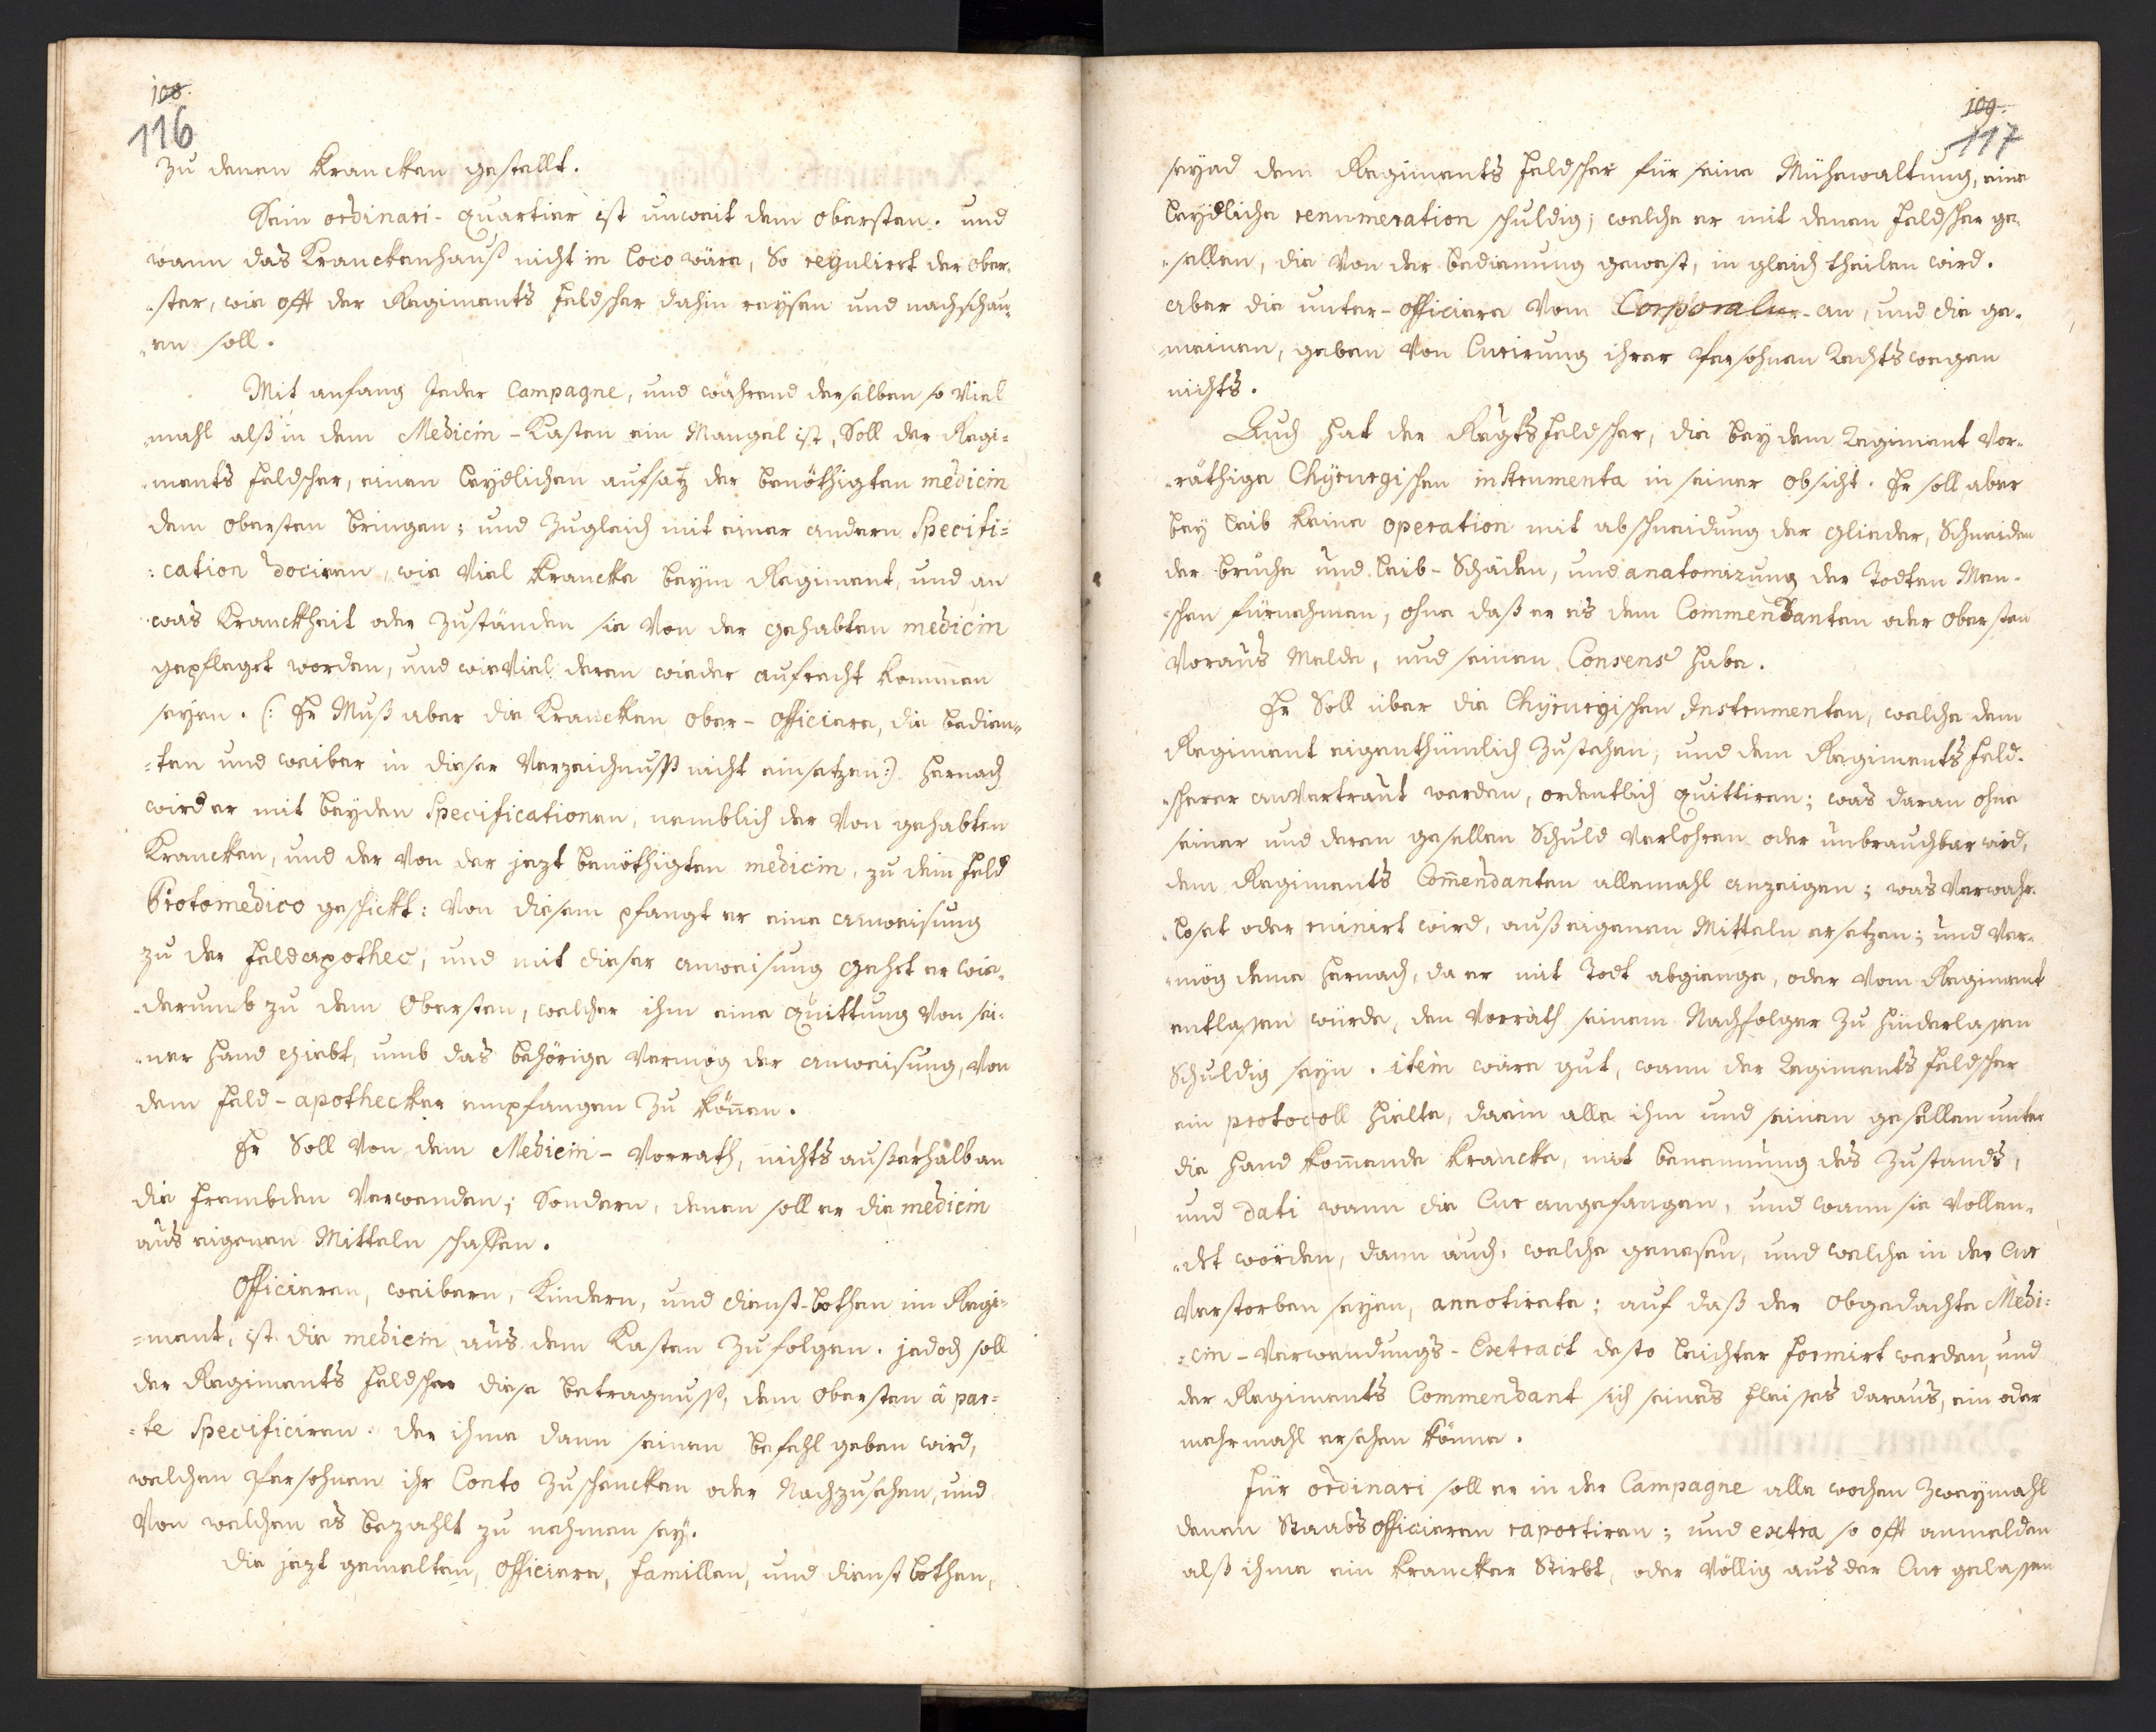 108.
116
zu denen Krancken gestellt.
Sein ordinari-quartier ist unweit dem obersten. und
wann das Kranckenhauß nicht in loco wäre, So reguliret der ober-
ster, wie offt der Regiments feldscher dahin reysen und nachschau-
en soll.
Mit anfang Jeder Campagne, und während derselben so viel
mahl alß in dem Medicin-Kasten ein Mangel ist, Soll der Regi-
ments feldscher, einen leydlichen aufsatz der benöthigten medicin
dem obersten bringen; und zugleich mit einer andern Specifi-
cation dociren, wie viel Krancke beym Regiment, und an
was Kranckheit oder zuständen sie von der gehabten medicin
gepfleget worden, und wieviel deren wieder aufrecht kommen
seyen. (: Er Muß aber die Krancken ober-officiere, die bedien-
ten und weiber in dieser Verzeichnuß nicht einsetzen:) hernach
wird er mit beyden Specificationen, nemblich der von gehabten
Krancken, und der von der jezt benöthigten medicin, zu dem feld
Protomedico geschickt: von diesem pfangt er eine anweisung
zu der feldapothec, und mit dieser anweisung gehet er wie-
derumb zu dem Obersten, welcher ihm eine quittung von sei-
ner hand giebt, umb das behörige vermög der anweisung, von
dem feld-apothecker empfangen zu können.
Er Soll von dem Medicin-Vorrath, nichts außerhalb an
die frembden verwenden; Sondern, denen soll er die medicin
aus eigenen Mitteln schaffen.
Officieren, weibern, Kindern, und dienst-bothen im Regi-
ment, ist die medicin aus dem Kasten zufolgen. jedoch soll
der Regiments feldscher diese betragnuß, dem obersten â par-
te specificiren. der ihme dann seinen befehl geben wird,
welchen Persohnen ihr Conto zuschencken oder Nachzusehen, und
von welchen es bezahlt zu nehmen sey.
die jezt gemelten, Officiere, famillen, und dienstbothen,
109.
117
seynd dem Regiments feldscher für seine Mühewaltung, eine
leydliche renumeration schuldig; welche er mit denen feldscher ge-
sellen, die von der bedienung gewest, in gleich theilen wird.
aber die unter-officiere vom Corporalen-an, und die ge-
meinen, geben von Curirung ihrer Persohnen Rechtswegen
nichts.
Auch hat der Regts feldscher, die bey dem Regiment vor-
räthige Chyrurgischen instrumenta in seiner obsicht. Er soll aber
bey leib keine operation mit abschneidung der glieder, Schneiden
der brüche und leib-Schäden, und anatomizung der Todten Men-
schen fürnehmen, ohne daß er es dem Commendanten oder obersten
voraus melde, und seinen Consens habe.
Er Soll über die Chyrurgischen Instrumenten, welche dem
Regiment eigenthümlich zustehen, und dem Regiments feld-
scherer anvertraut werden, ordentlich quittiren; was daran ohne
seiner und deren gesellen Schuld verlohren oder unbrauchbar wird,
dem Regiments Com̄endanten allemahl anzeigen; was verwahr-
loset oder ruinirt wird, auß eigenen Mitteln ersetzen; und ver-
mög deme hernach, da er mit Todt abgienge, oder vom Regiment
entlassen würde, den Vorrath seinem Nachfolger zu hinderlassen
Schuldig seyn. item wäre gut, wann der Regiments feldscher
ein protocoll hielte, darin alle ihm und seinen gesellen unter
die hand kom̄ende Krancke, mit benennung des zustands,
und dati wann die Cur angefangen, und wann sie vollen-
det worden, dann auch, welche genesen, und welche in der Cur
verstorben seyen, annotirete; auf daß der obgedachte Medi-
cin-Verwendungs-Extract desto leichter formirt werden, und
der Regiments Commendant sich seines fleisses daraus, ein oder
mehrmahl ersehen könne.
Für ordinari soll er in der Campagne alle wochen zweymahl
denen Staabsofficieren raportiren; und extra so offt anmelden
alß ihme ein Krancker Stirbt, oder völlig aus der Cur gelassen